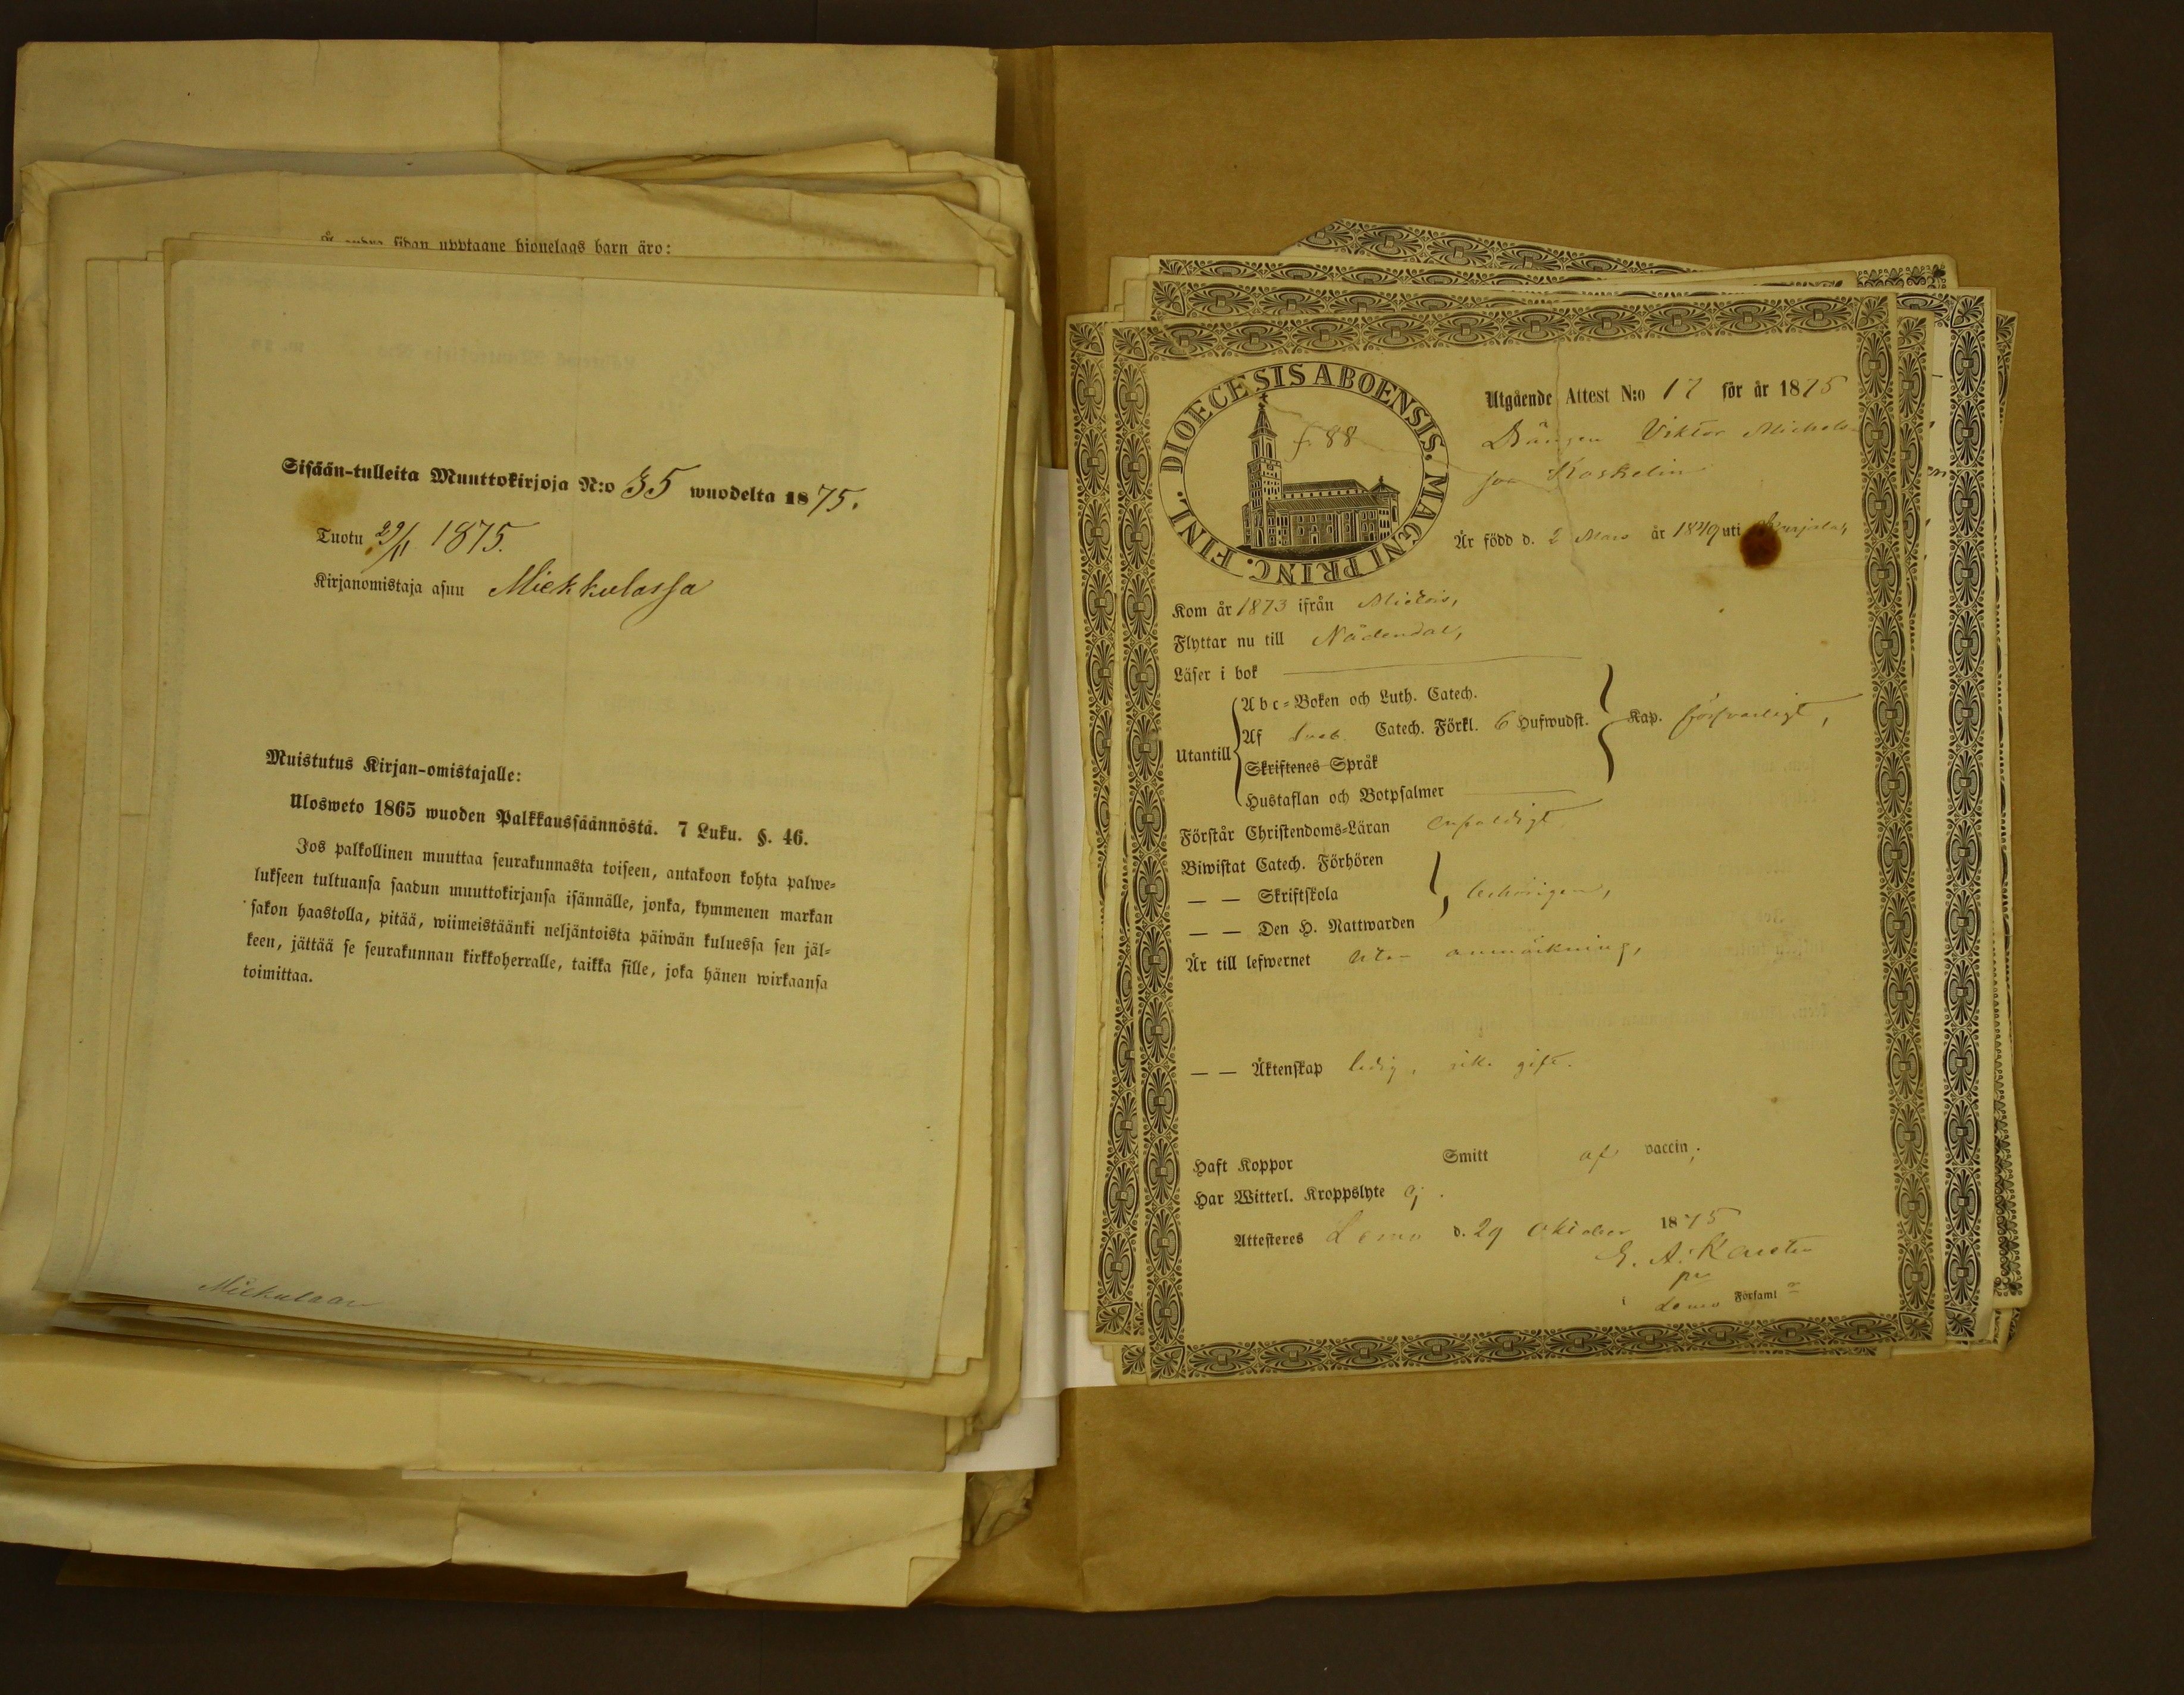 Å andra sidan upptagne hionelags barn äro:
Sisään-tulleita Muuttokirjoja N:o 35 wuodelta 1875.
Tuotu 29/11 1875.
Kirjanomistaja asuu Miekkulassa
Muistutus Kirjan-omistajalle:
Ulosweto 1865 wuoden Palkkaussäännöstä. 7 Luku. §. 46.
Jos palkollinen muuttaa seurakunnasta toiseen, antakoon kohta palwe=
lukseen tultuansa saadun muuttokirjansa isännälle, jonka, kymmenen markan
sakon haastolla, pitää, wiimeistäänki neljäntoista päiwän kuluessa sen jäl=
keen, jättää se seurakunnan kirkkoherralle, taikka sille, joka hänen wirkaansa
toimittaa.
DIOECESIS ABOENSIS. MAGNI PRINC. FINL.
f. 88
Utgående Attest N:o 17 för år 1875
Drängen Viktor Michels-
son Koskelin
Är född d. 2 Mars år 1849 uti
Kom år 1873 ifrån Mietois,
Flyttar nu till Nådendal,
Läser i bok
Utantill
Abc=Boken och Luth. Catech.
Af Sveb. Catech. Förkl. 6 Hufwudst.
Skriftenes Språk
Hustaflan och Botpsalmer
Kap. försvarligt,
Förstår Christendoms=Läran enfaldigt
Biwistat Catech. Förhören
— — Skriftskola
— — Den H. Nattwarden
behörigen,
Är till lefwernet utan anmärkning,
— — Äktenskap ledig, icke gift.
Haft Koppor Smitt af vaccin,
Har Witterl. Kroppslyte ej.
Attesteres Lemo d. 29 Oktober 1875
E. A. Karsten
i Lemo Församl